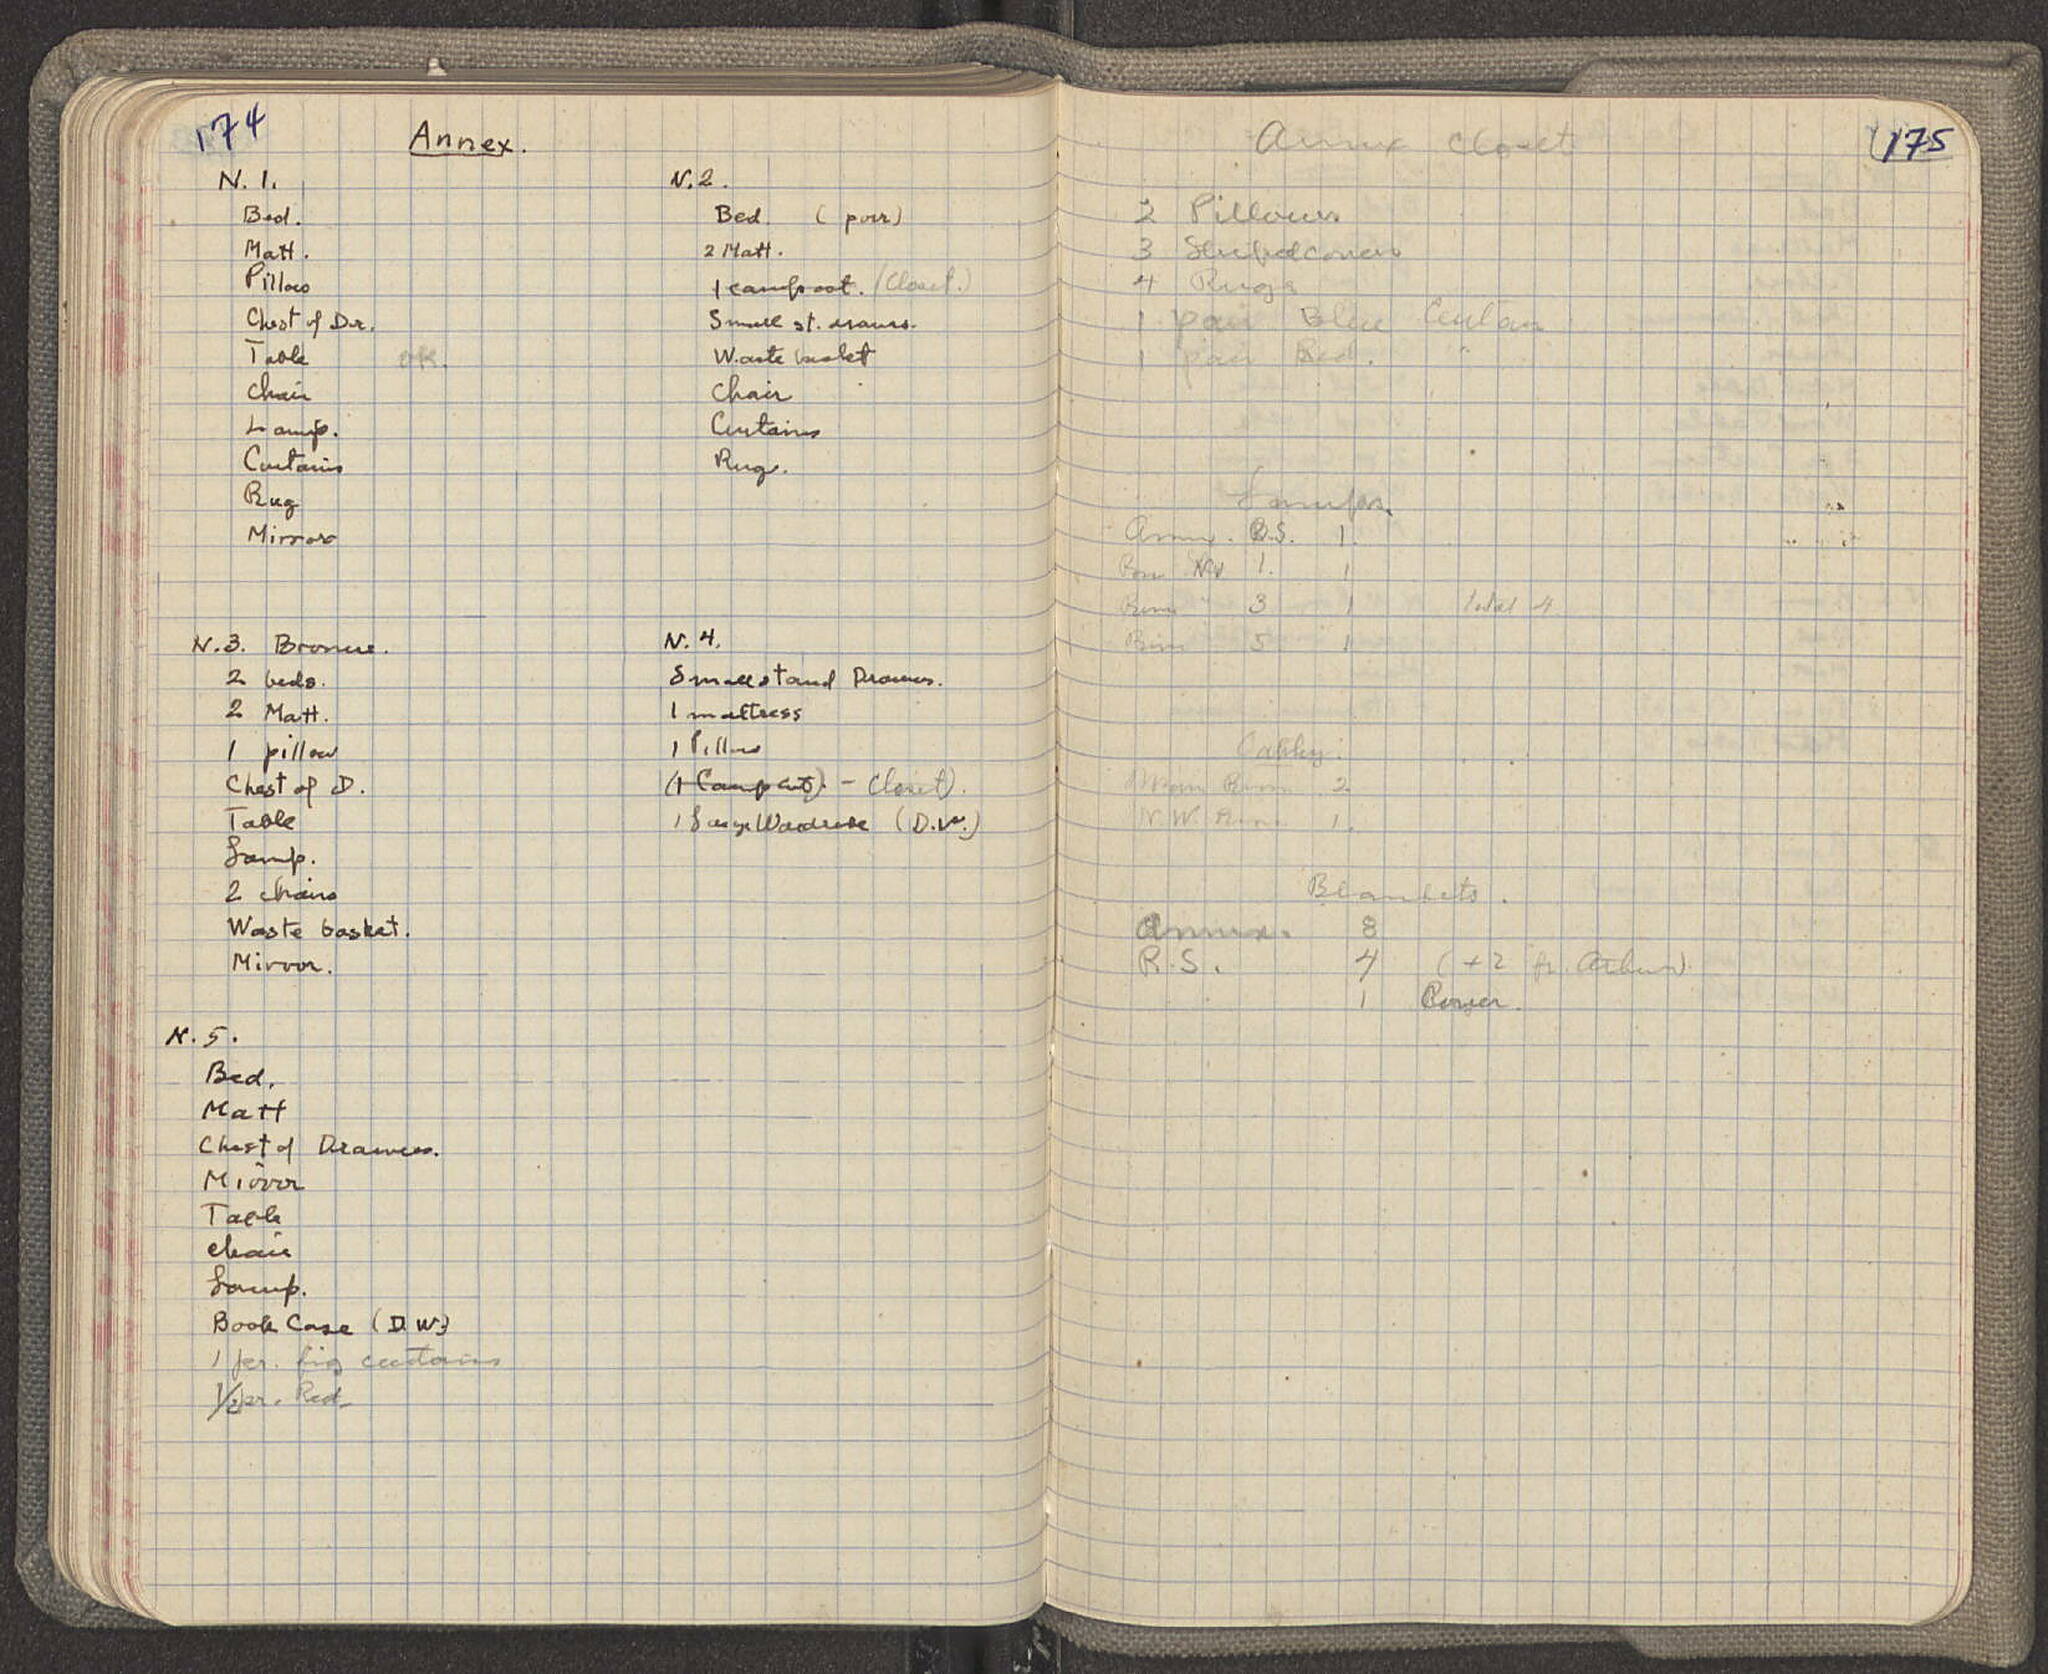 174
Annex.
N. 1.
Bed.
Matt.
Pillow
Chest of Dr.
Table ok.
Chair
Lamp.
Curtains
Rug
Mirror
N. 2.
Bed. (poor)
2 Matt.
1 camp cot. (Closet.)
Small st. draws.
Waste basket
Chair
Curtains
Rug.
N. 3. Broneer.
2 beds.
2 Matt.
1 pillow
Chest of D.
Table
Lamp.
2 chairs
Waste basket.
Mirror.
N. 4.
Small stand Drawers.
1 mattress
1 Pillow
(1 Camp cot) - Closet).
1 Large Wardrobe (D.W.)
N. 5.
Bed.
Matt
Chest of Drawers.
Mirror
Table
chair
Lamp.
Book Case (D.W.)
1 pr. fig curtains
1/2 pr. Red.
175
Annex Closet
2 Pillows
3 Striped covers
4 Rugs
1 pair Blue Curtain
1 pair Red. "
Lamps.
Annex. B.S. 1.
Room No 1. 1
Room " 3 1 Total 4
Room 5 1
Oakley.
Main Room 2
N.W. Room 1.
Blankets.
Annex. 8
R.S. 4 (+2 fr. Arthur)
1